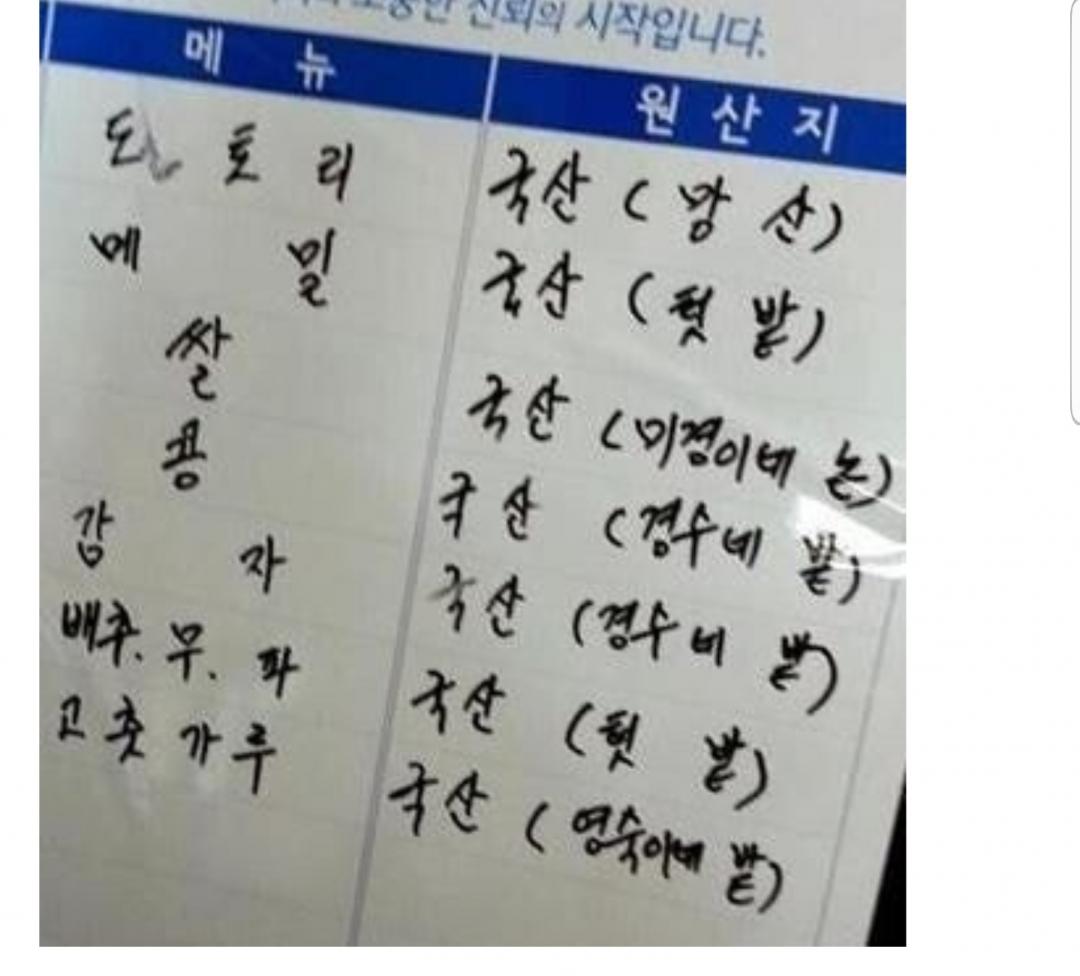 소중한 신뢰의 시작입니다.
메 뉴 원 산 지
도 토 리 국산 ( 앞 산 )
메 밀 국산 ( 텃 밭 )
쌀 국산 ( 미경이네 논 )
콩 국산 ( 경수네 밭 )
감 자 국산 ( 경수네 밭 )
배추. 무. 파 국산 ( 텃 밭 )
고춧가루 국산 ( 영숙이네 밭 )